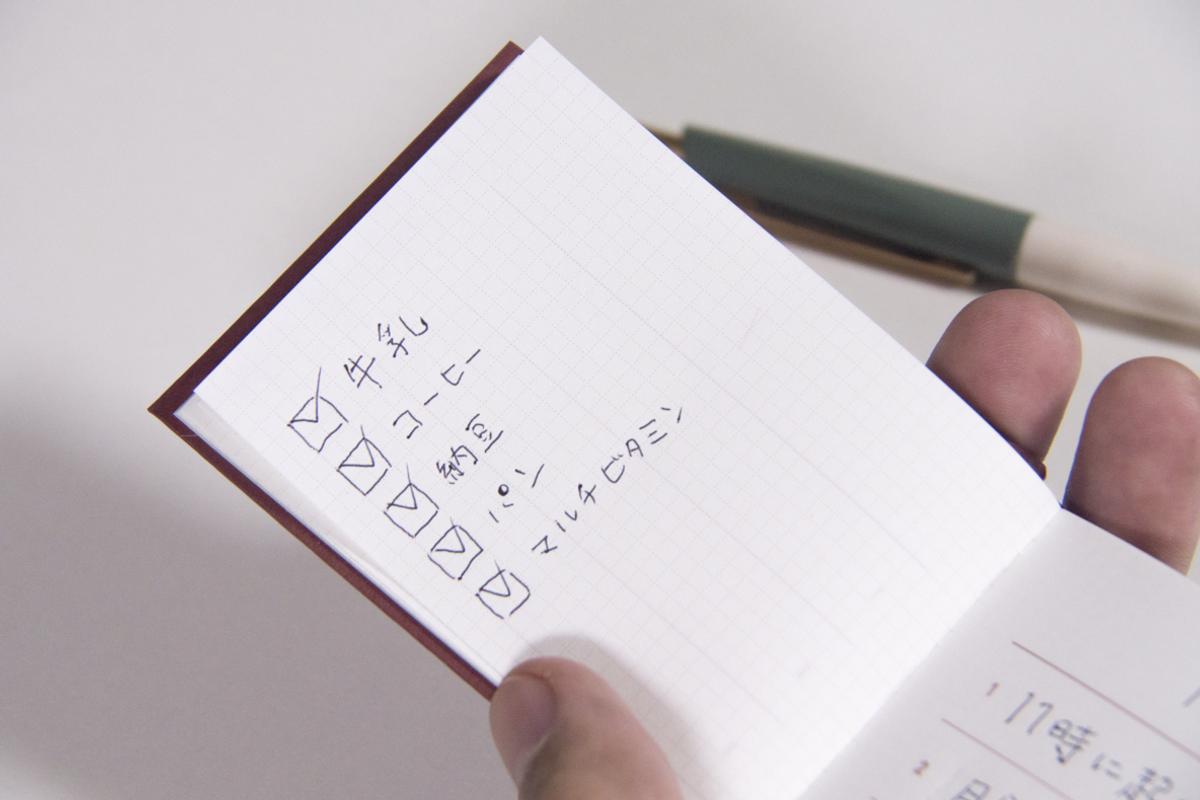 ☑ 牛乳
☑ コーヒー
☑ 納豆
☑ パン
☑ マルチビタミン
1 11時に起
2